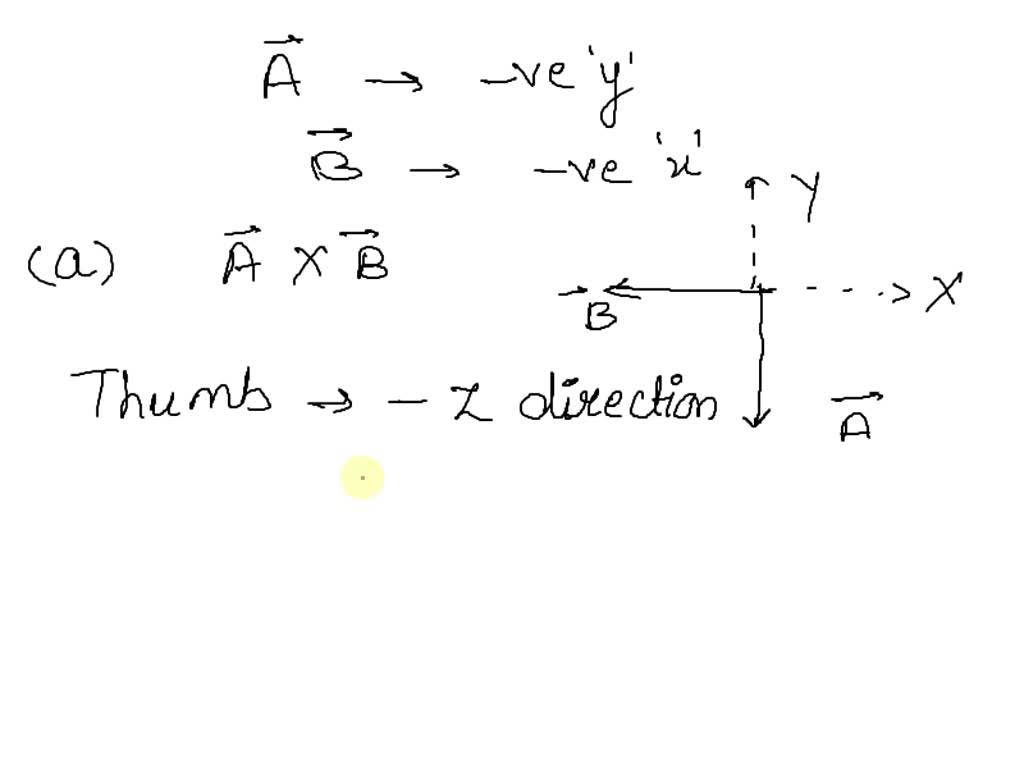 A⃗ → -ve 'y'
B⃗ → -ve 'x'
Y
(a) A⃗ X B⃗
B⃗
X
Thumb → - Z direction
A⃗